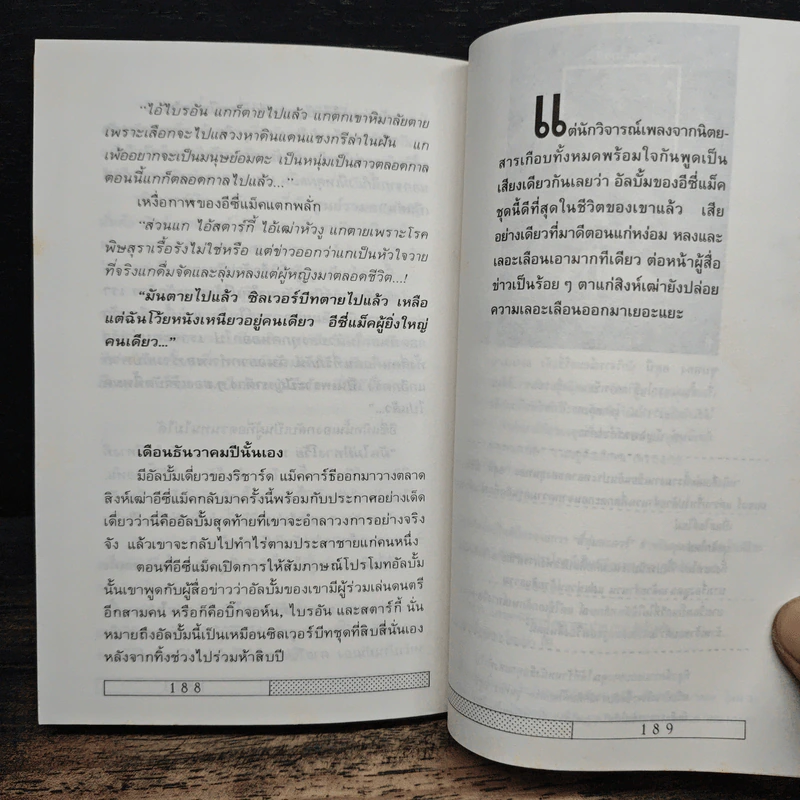 “ไอ้ไบรอัน แกก็ตายไปแล้ว แกตกเขาหิมาลัยตาย
เพราะเลือกจะไปแสวงหาดินแดนแชงกรีล่าในฝัน แก
เพ้ออยากจะเป็นมนุษย์อมตะ เป็นหนุ่มเป็นสาวตลอดกาล
ตอนนี้แกก็ตลอดกาลไปแล้ว...”
เหงื่อกาฬของอีซี่แม็คแตกพลั่ก
“ส่วนแก ไอ้สตาร์กี้ ไอ้เฒ่าหัวงู แกตายเพราะโรค
พิษสุราเรื้อรังไม่ใช่หรือ แต่ข่าวออกว่าแกเป็นหัวใจวาย
ที่จริงแกดื่มจัดและลุ่มหลงแต่ผู้หญิงมาตลอดชีวิต...!
“มันตายไปแล้ว ซิลเวอร์บีทตายไปแล้ว เหลือ
แต่ฉันโว้ยหนังเหนียวอยู่คนเดียว อีซี่แม็คผู้ยิ่งใหญ่
คนเดียว...”
เดือนธันวาคมปีนั้นเอง
มีอัลบั้มเดี่ยวของริชาร์ด แม็คคาร์ธีออกมาวางตลาด
สิงห์เฒ่าอีซี่แม็คกลับมาครั้งนี้พร้อมกับประกาศอย่างเด็ด
เดี่ยวว่านี่คืออัลบั้มสุดท้ายที่เขาจะอำลาวงการอย่างจริง
จัง แล้วเขาจะกลับไปทำไร่ตามประสาชายแก่คนหนึ่ง
ตอนที่อีซี่แม็คเปิดการให้สัมภาษณ์โปรโมทอัลบั้ม
นั้นเขาพูดกับผู้สื่อข่าวว่าอัลบั้มของเขามีผู้ร่วมเล่นดนตรี
อีกสามคน หรือก็คือบิ๊กจอห์น, ไบรอัน และสตาร์กี้ นั่น
หมายถึงอัลบั้มนี้เป็นเหมือนซิลเวอร์บีทชุดที่สิบสี่นั่นเอง
หลังจากทิ้งช่วงไปร่วมห้าสิบปี
188
แต่นักวิจารณ์เพลงจากนิตย-
สารเกือบทั้งหมดพร้อมใจกันพูดเป็น
เสียงเดียวกันเลยว่า อัลบั้มของอีซี่แม็ค
ชุดนี้ดีที่สุดในชีวิตของเขาแล้ว เสีย
อย่างเดียวที่มาดีตอนแก่หง่อม หลงและ
เลอะเลือนเอามากทีเดียว ต่อหน้าผู้สื่อ
ข่าวเป็นร้อย ๆ ตาแก่สิงห์เฒ่ายังปล่อย
ความเลอะเลือนออกมาเยอะแยะ
189